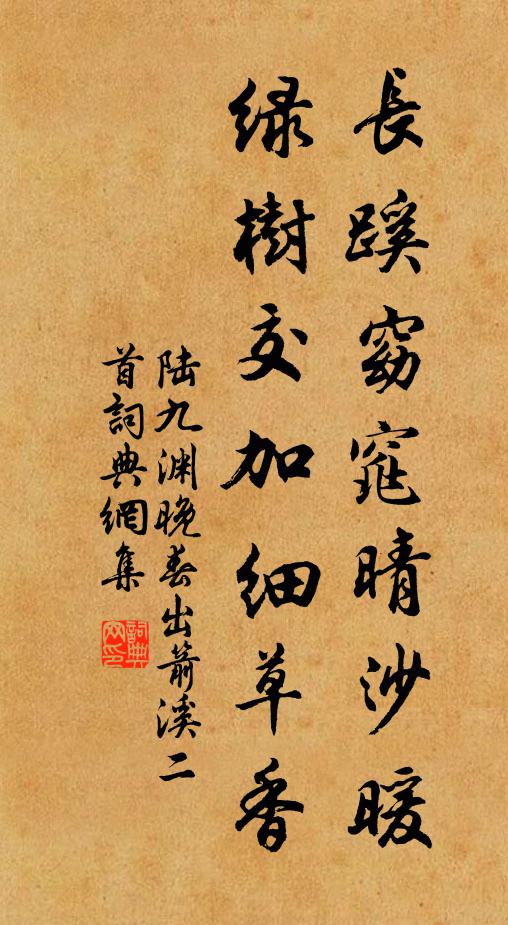 長蹊窈窕晴沙暖
緑樹交加細草香
陸九渊晚春出箭溪二
首詞典網集
詞典
网印